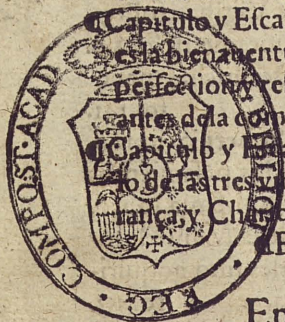 ¶Capitulo y Esca
es la bienauentu
perfection y re
antes dela com
¶Capitulo y Esca
lo de las tres vi
rança, y Cha
REG. COMPOST. ACAD.